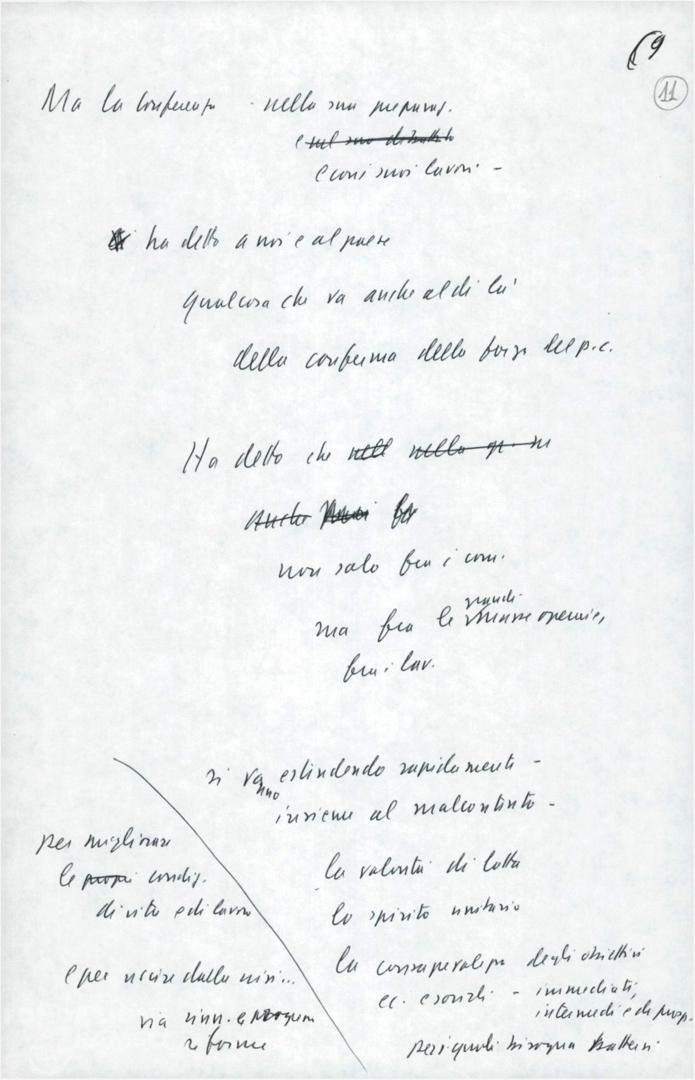 69
11
Ma la conferenza nella sua preparaz.
e sul suo dibattito
e con i suoi lavori -
ha detto a noi e al paese
qualcosa che va anche al di là
della conferma della forza del p.c.
Ha detto che nell nella
Anche fra
non solo fra i com.
grandi
ma fra le masse operaie,
fra i lav.
si vanno estendendo rapidamente -
insieme al malcontento -
per migliorare
le propri condiz.
di vita e di lavoro
e per uscire dalla crisi...
via rinn. e
riforme
la volontà di lotta
lo spirito unitario
la consapevolezza degli obiettivi
ec. e sociali - immediati,
intermedi e di prosp.
per i quali bisogna battersi